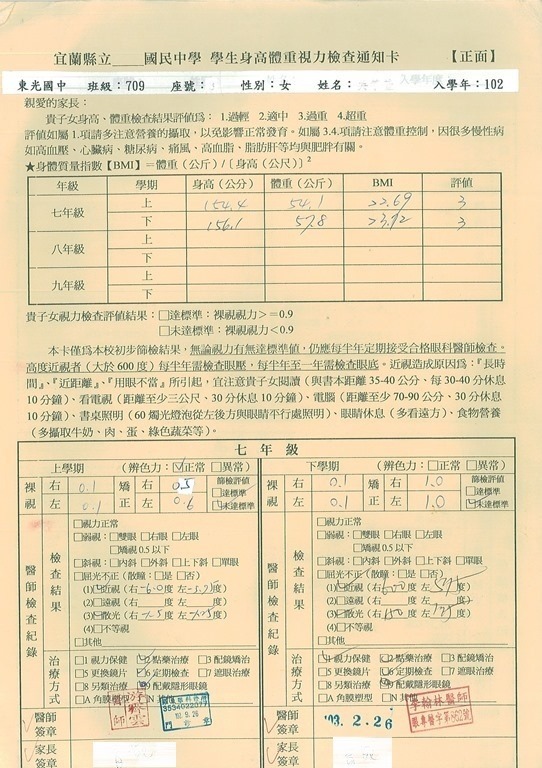 宜蘭縣立____國民中學 學生身高體重視力檢查通知卡 【正面】
東光國中 班級：709 座號： 性別：女 姓名： 入學年：102
親愛的家長：
貴子女身高、體重檢查結果評值為：1.過輕 2.適中 3.過重 4.超重
評值如屬 1.項請多注意營養的攝取，以免影響正常發育。如屬 3.4.項請注意體重控制，因很多慢性病
如高血壓、心臟病、糖尿病、痛風、高血脂、脂肪肝等均與肥胖有關。
★身體質量指數【BMI】＝體重（公斤）/〔身高（公尺）〕²
年級 學期 身高（公分） 體重（公斤） BMI 評值
七年級 上 154.4 54.1 22.69 3
下 156.1 57.8 23.72 3
八年級 上
下
九年級 上
下
貴子女視力檢查評值結果：□達標準：裸視視力＞＝0.9
□未達標準：裸視視力＜0.9
本卡僅為本校初步篩檢結果，無論視力有無達標準值，仍應每半年定期接受合格眼科醫師檢查。
高度近視者（大於 600 度）每半年需檢查眼壓，每半年至一年需檢查眼底。近視造成原因為：『長時
間』、『近距離』、『用眼不當』所引起，宜注意貴子女閱讀（與書本距離 35-40 公分、每 30-40 分休息
10 分鐘）、看電視（距離至少三公尺、30 分休息 10 分鐘）、電腦（距離至少 70-90 公分、30 分休息
10 分鐘）、書桌照明（60 燭光燈泡從左後方與眼睛平行處照明）、眼睛休息（多看遠方）、食物營養
（多攝取牛奶、肉、蛋、綠色蔬菜等）。
七 年 級
上學期 （辨色力：☑正常 □異常）
裸視 右 0.1 矯正 右 0.5 篩檢評值
左 0.1 左 0.6 □達標準
☑未達標準
醫師檢查紀錄
檢查結果
□視力正常
□弱視：□雙眼 □右眼 □左眼
□矯視 0.5 以下
□斜視：□內斜 □外斜 □上下斜 □單眼
□屈光不正（散瞳：□是 □否）
(1)☑近視（右-6.0度 左-5.75度）
(2)□遠視（右 度 左 度）
(3)☑散光（右-1.5度 左-1.25度）
(4)□不等視
□其他
治療方式
□1 視力保健 ☑2 點藥治療 □3 配鏡矯治
□5 更換鏡片 ☑6 定期檢查 □7 遮眼治療
□8 另類治療 ☑9 配戴隱形眼鏡
□A 角膜塑型 □N 其他
醫師簽章
3534022077
02.9.26
家長簽章
下學期 （辨色力：□正常 □異常）
裸視 右 0.1 矯正 右 1.0 篩檢評值
左 0.1 左 1.0 □達標準
☑未達標準
□視力正常
□弱視：□雙眼 □右眼 □左眼
□矯視 0.5 以下
□斜視：□內斜 □外斜 □上下斜 □單眼
□屈光不正（散瞳：□是 □否）
(1)☑近視（右600度 左575度）
(2)□遠視（右 度 左 度）
(3)☑散光（右 度 左175度）
(4)□不等視
□其他
治療方式
☑1 視力保健 ☑2 點藥治療 □3 配鏡矯治
□5 更換鏡片 ☑6 定期檢查 □7 遮眼治療
□8 另類治療 ☑9 配戴隱形眼鏡
□A 角膜塑型 □N 其
醫師簽章
103. 2 - 26
李翰林醫師
眼專醫字第862號
家長簽章